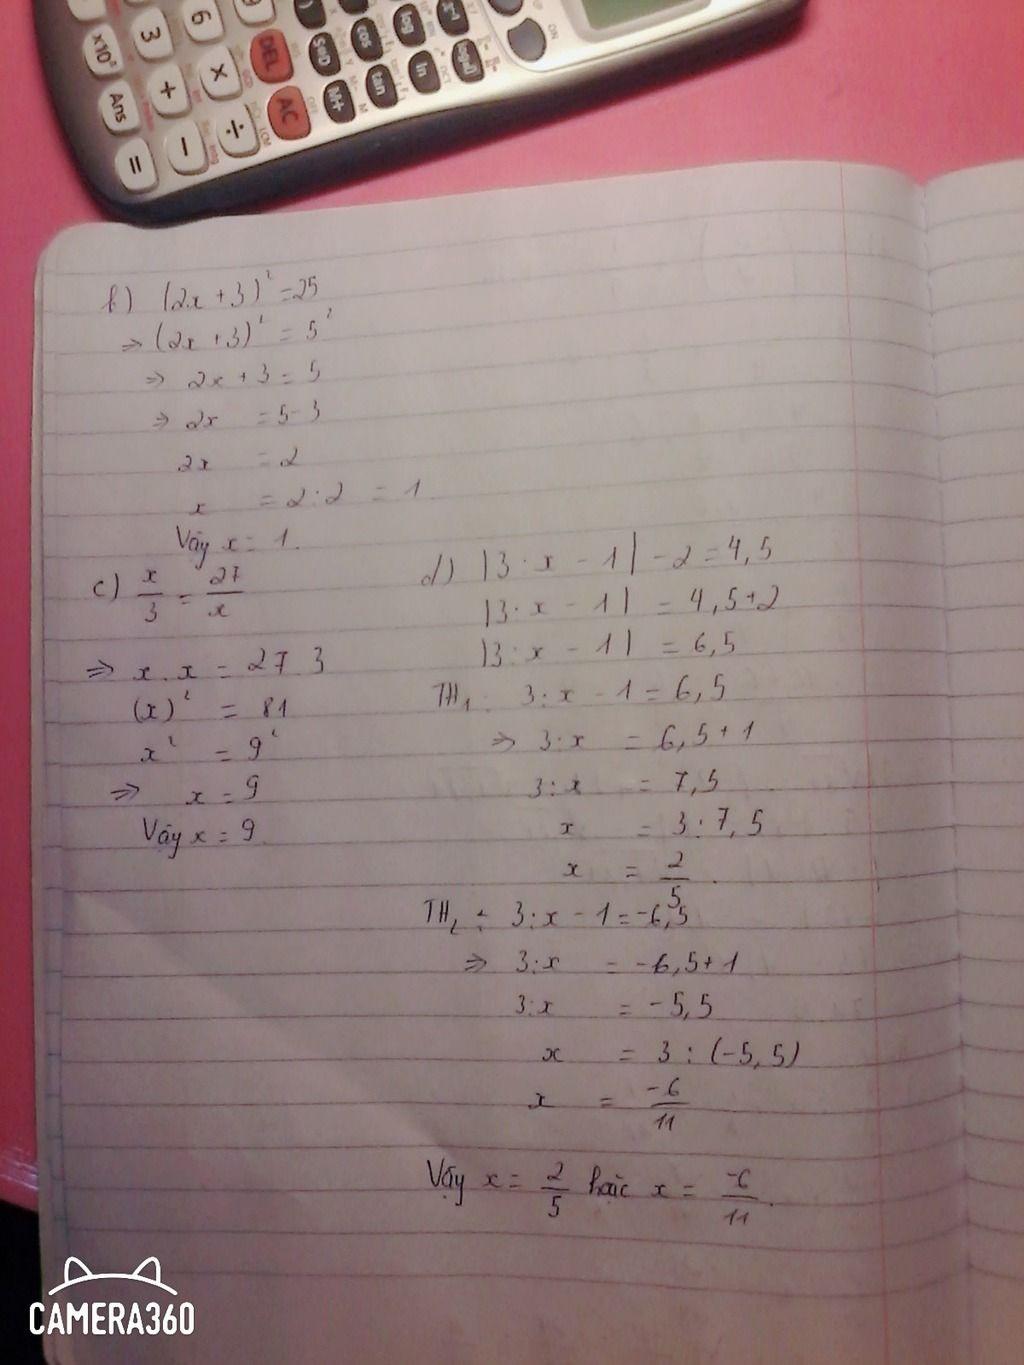 b) (2x + 3)² = 25
=> (2x + 3)² = 5²
=> 2x + 3 = 5
=> 2x = 5 - 3
2x = 2
x = 2 : 2 = 1
Vậy x = 1.
c) x/3 = 27/x
=> x . x = 27 . 3
(x)² = 81
x² = 9²
=> x = 9
Vậy x = 9.
d) |3 : x - 1| - 2 = 4,5
|3 : x - 1| = 4,5 + 2
|3 : x - 1| = 6,5
TH₁ : 3 : x - 1 = 6,5
=> 3 : x = 6,5 + 1
3 : x = 7,5
x = 3 : 7,5
x = 2/5 .
TH₂ : 3 : x - 1 = -6,5
=> 3 : x = -6,5 + 1
3 : x = -5,5
x = 3 : (-5,5)
x = -6/11
Vậy x = 2/5 hoặc x = -6/11 .
x10ˣ
3
6
Ans
+
×
DEL
=
-
÷
AC
M+
S⇔D
cos
tan
log
ln
x⁻¹
ON
LCM
CAMERA360